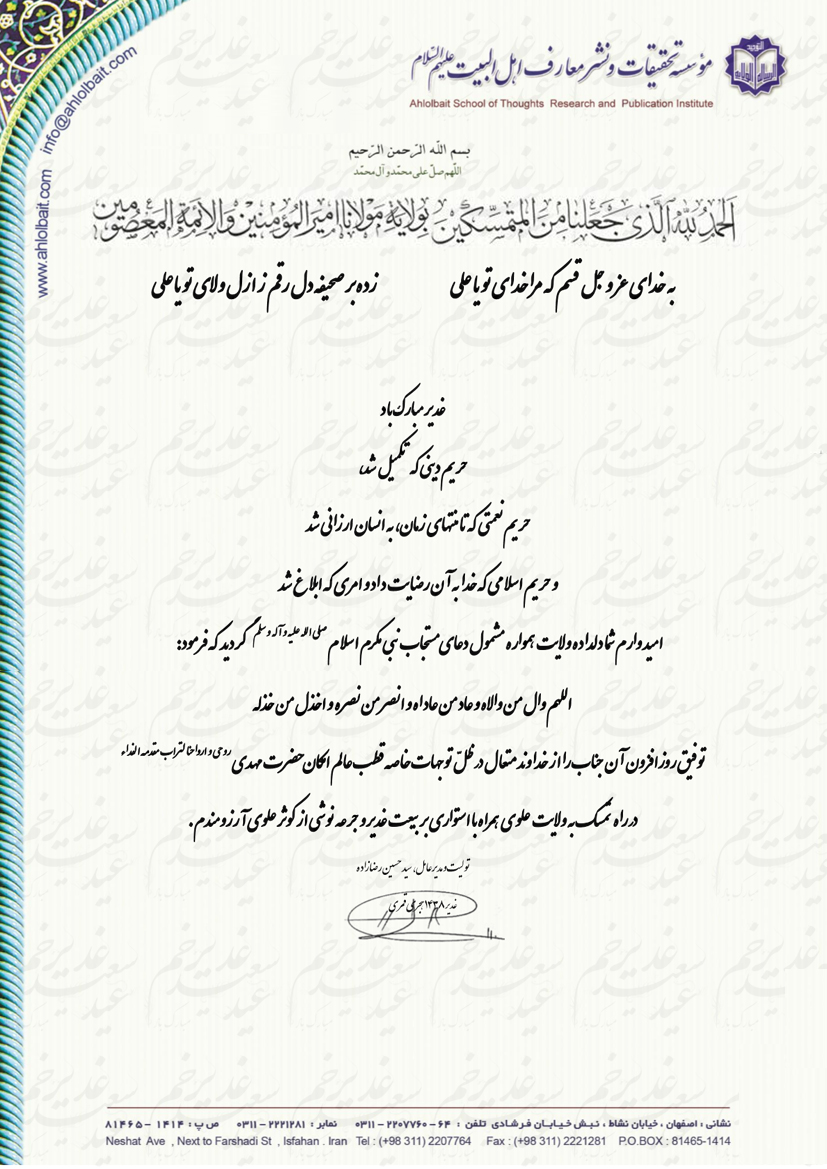 مؤسسه تحقیقات و نشر معارف اهل البیت علیهم السلام
Ahlolbait School of Thoughts Research and Publication Institute
info@ahlolbait.com
www.ahlolbait.com
بسم الله الرّحمن الرّحیم
اللّهم صلّ علی محمّد و آل محمّد
اَلحَمدُ لِلّهِ الَّذی جَعَلَنا مِنَ المُتَمَسِّکینَ بِوِلایَةِ مَولانا اَمیرِ المُؤمِنینَ وَ الاَئِمَّةِ المَعصُومین
به خدای عزوجل قسم که مرا خدای تو یا علی زده بر صحیفه دل رقم ز ازل ولای تو یا علی
غدیر مبارک باد
حریم دینی که تکمیل شد،
حریم نعمتی که تا منتهای زمان، به انسان ارزانی شد
و حریم اسلامی که خدا به آن رضایت داد و امری که ابلاغ شد
امیدوارم شما دلداده ولایت همواره مشمول دعای مستجاب نبی مکرم اسلام صلی الله علیه و آله و سلم گردید که فرمود:
اللهم وال من والاه و عاد من عاداه و انصر من نصره و اخذل من خذله
توفیق روز افزون آن جناب را از خداوند متعال در ظلّ توجهات خاصه قطب عالم امکان حضرت مهدی روحی و ارواحنا لتراب مقدمه الفداء
در راه تمسک به ولایت علوی همراه با استواری بر بیعت غدیر و جرعه نوشی از کوثر علوی آرزومندم.
تولیت و مدیر عامل، سید حسین رضازاده
غدیر ۱۴۳۸ هجری قمری
نشانی : اصفهان ، خیابان نشاط ، نبش خیابان فرشادی تلفن : ۶۴ - ۲۲۰۷۷۶۰ - ۰۳۱۱ نمابر : ۲۲۲۱۲۸۱ - ۰۳۱۱ ص پ : ۱۴۱۴ - ۸۱۴۶۵
Neshat Ave , Next to Farshadi St , Isfahan . Iran Tel : (+98 311) 2207764 Fax : (+98 311) 2221281 P.O.BOX : 81465-1414